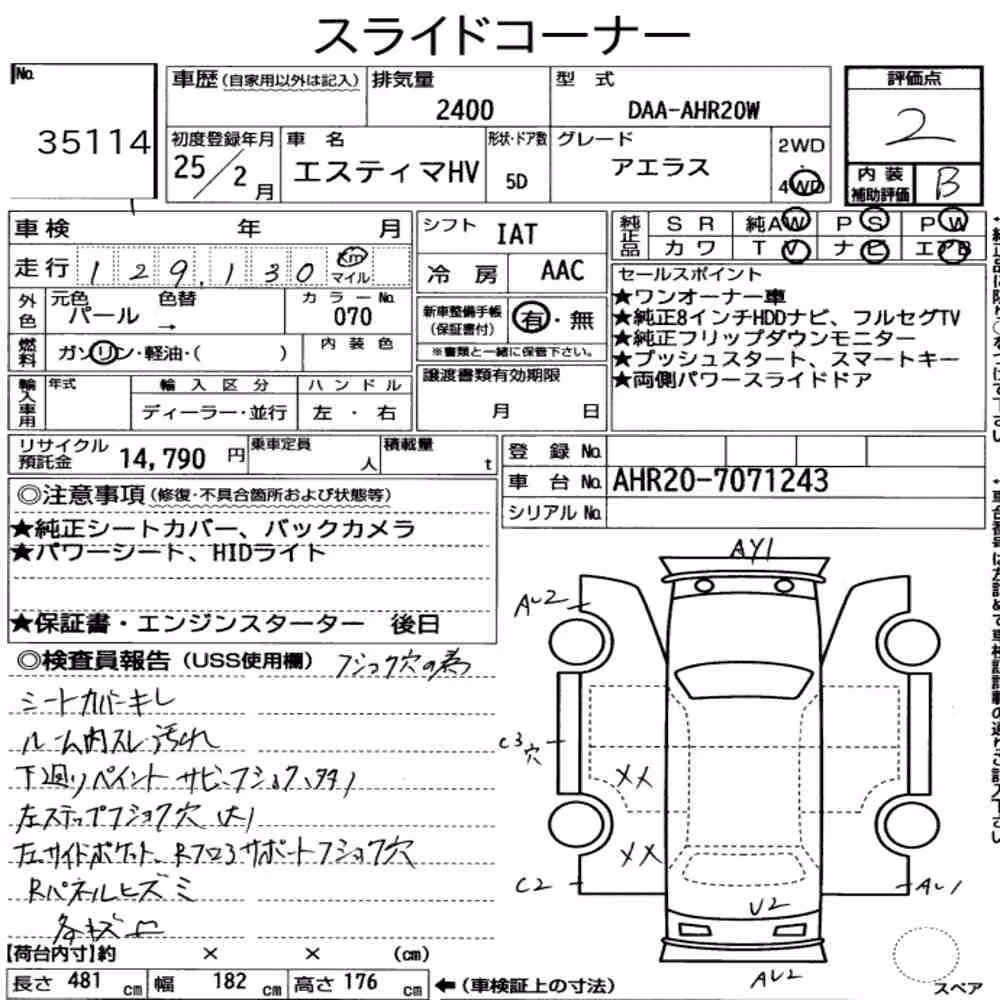 スライドコーナー
No.
35114
車歴 (自家用以外は記入)
排気量
2400
型 式
DAA-AHR20W
評価点
2
初度登録年月
25/2月
車 名
エスティマHV
形状・ドア数
5D
グレード
アエラス
2WD
・
4WD
内装
補助評価
B
車検 年 月
シフト
IAT
純正品
SR 純AW PS PW
カワ TV ナビ エアB
走行 129,130 Km
マイル
冷 房
AAC
セールスポイント
★ワンオーナー車
★純正8インチHDDナビ、フルセグTV
★純正フリップダウンモニター
★プッシュスタート、スマートキー
★両側パワースライドドア
外色
元色 色替
パール →
カラーNo.
070
新車整備手帳
(保証書付)
有・無
※書類と一緒に保管下さい。
燃料
ガソリン・軽油・( )
内装色
輸入車用
年式
輸入区分
ディーラー・並行
ハンドル
左・右
譲渡書類有効期限
月 日
リサイクル
預託金
14,790 円
乗車定員
人
積載量
t
登 録 No.
車 台 No.
AHR20-7071243
シリアル No.
◎注意事項 (修復・不具合箇所および状態等)
★純正シートカバー、バックカメラ
★パワーシート、HIDライト
★保証書・エンジンスターター 後日
◎検査員報告 (USS使用欄)
シートカバーキレ
ルーム内スレ汚れ
下廻りペイント サビ
左ステップフショク穴(大)
左サイドポケット、Rフロアサポートフショク穴
Rパネルヒズミ
各キズ凹
AY1
AU2
C3
穴
XX
XX
C2
AU1
U2
AU2
スペア
【荷台内寸】約 × × (cm)
長さ 481 cm 幅 182 cm 高さ 176 cm ←(車検証上の寸法)